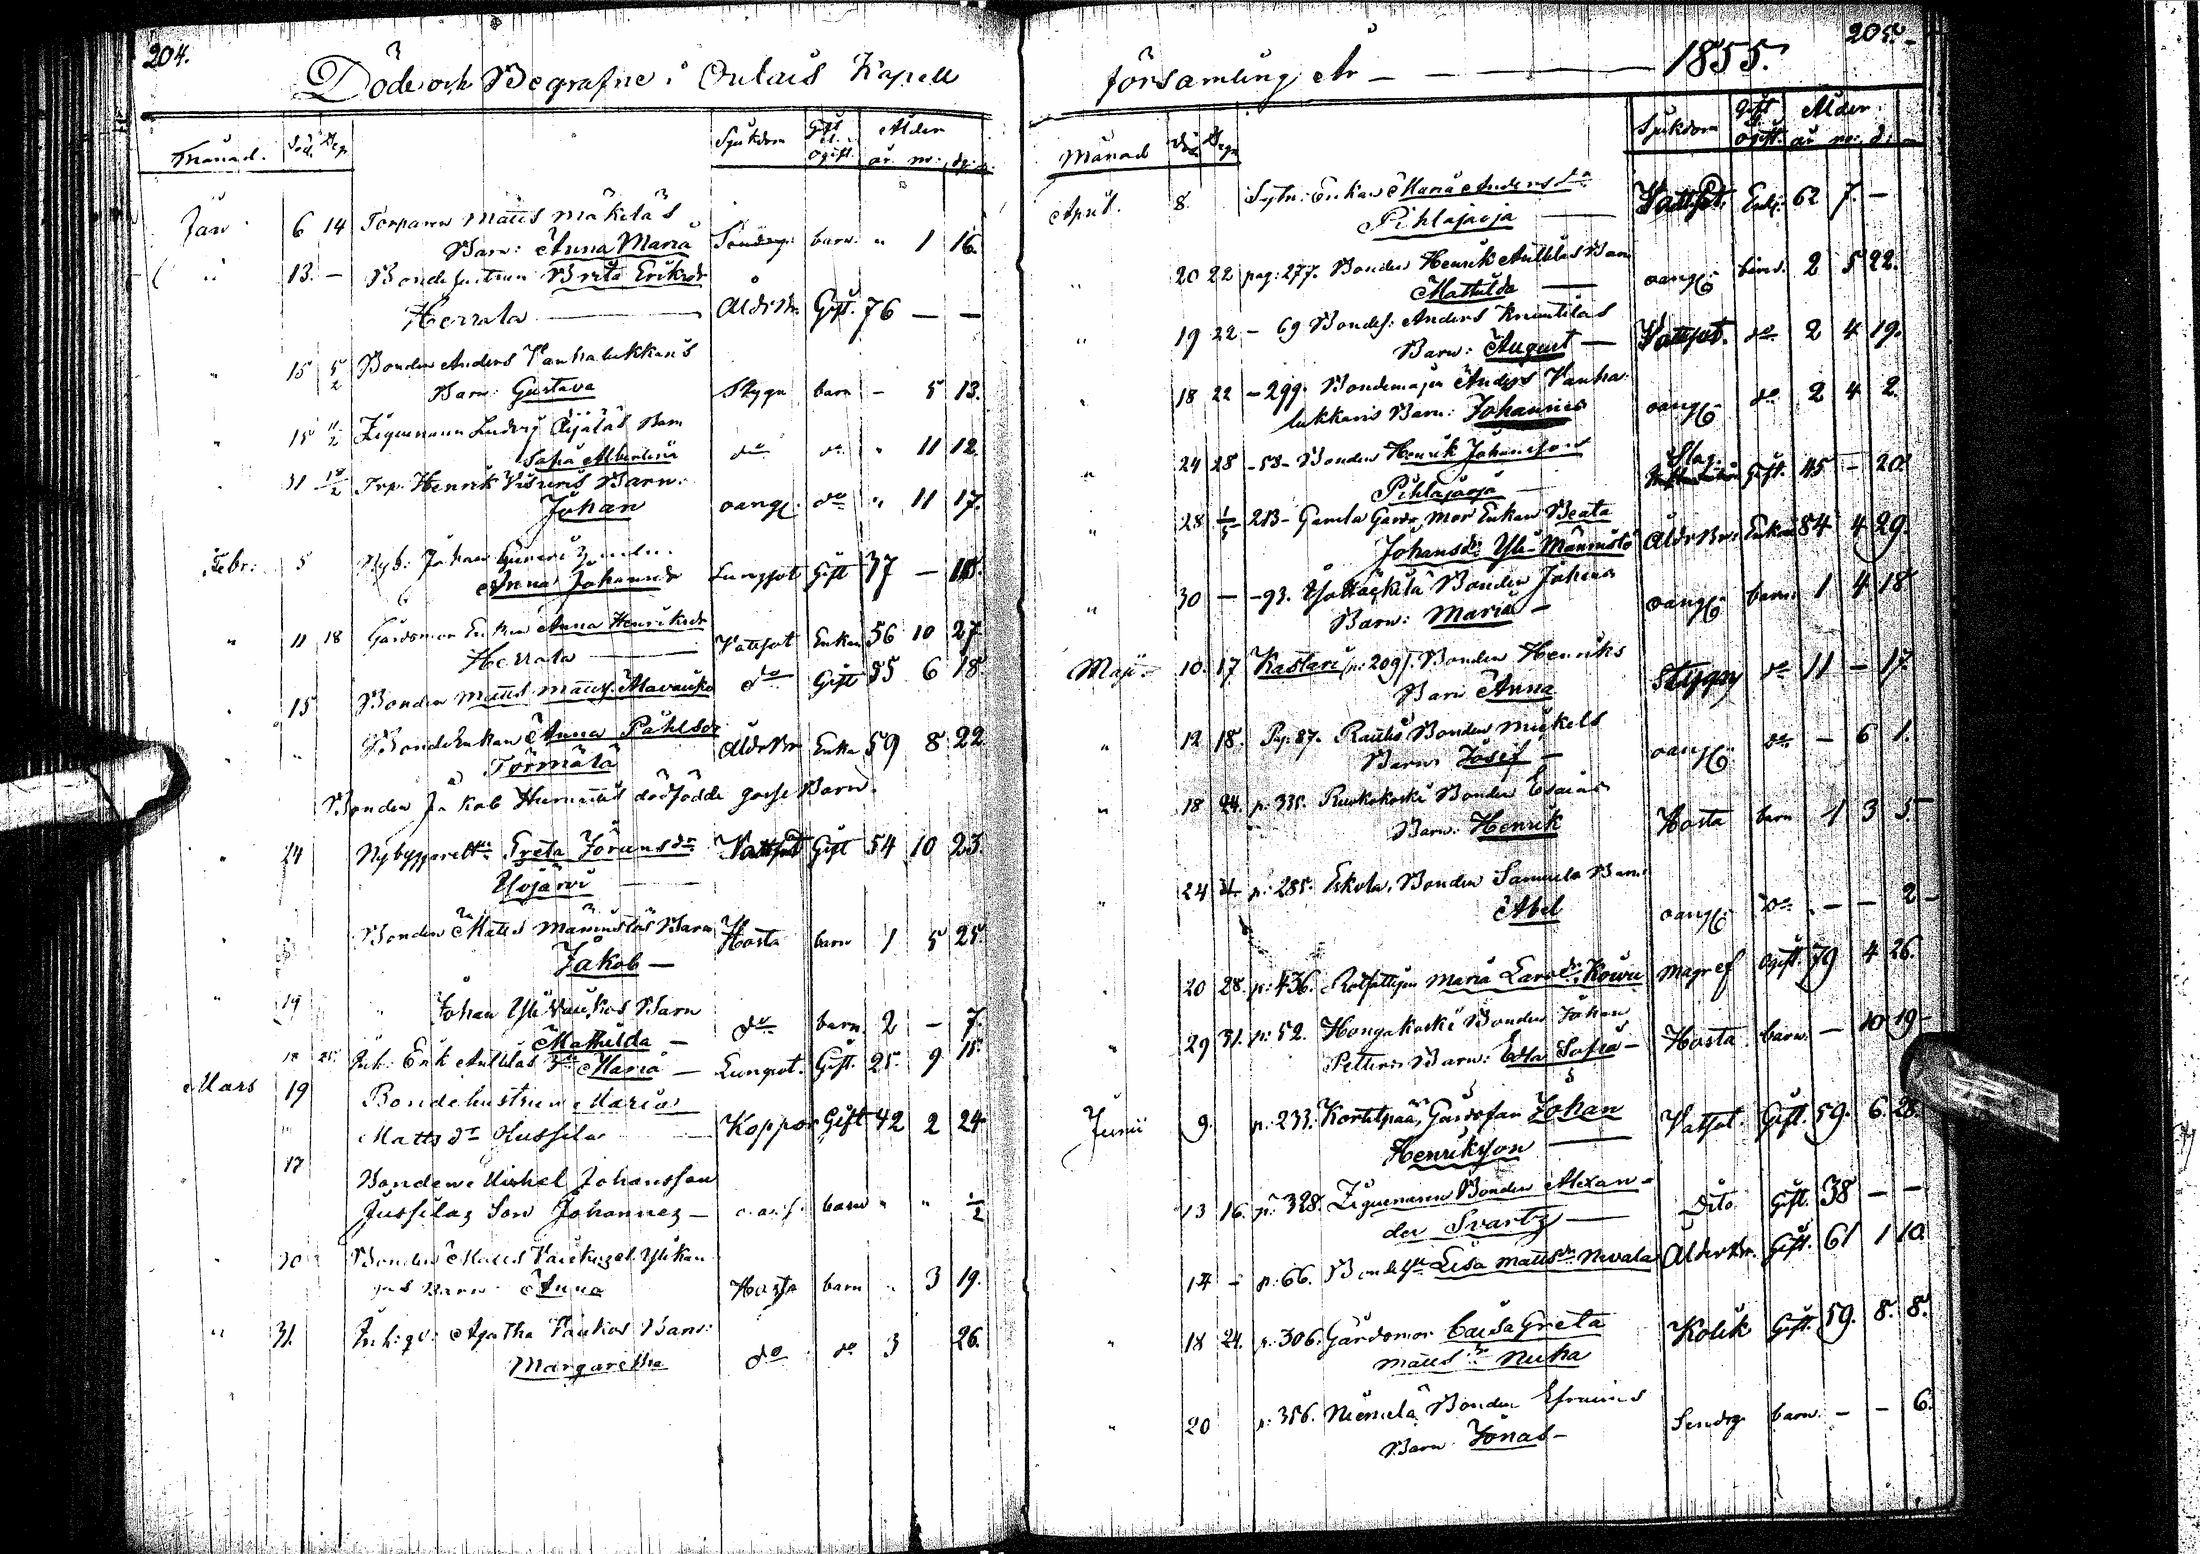 204.
Döde och Begrafne i Oulais Kapell
Månad. Död. Begr. Sjukdom Gift el. ogift. Ålder år m: dg:
Jan 6 14 Torparen Matts Mäkiläs
Barn: Anna Maria barn " 1 16.
" 13. – Bondehustrun Brita Eriksdr
Herrala Åldrdr Gift. 76 – –
" 15 5/2 Bonden Anders Vanhalukkari's
Barn: Gustava Stygn barn – 5 13.
" 15 11/2 Ludvig Äijäläs Barn
Sofia Albertina do do " 11 12
31 18/2 Trp: Henrik Barn:
Johan oang: do " 11 17.
Febr: 5 Nyb: Johan
Anna Johansdr Lungsot Gift 37 –
" 11 18 Gårdsmor Enkan Anna Henriksdr
Herrala Vattsot Enkan 56 10 27
" 15 Bonden Matts Mattss. Alavaiko do Gift 85 6 18.
" " Bonde Enkan Anna Påhlsdr
Törmälä Åldrdr Enka 59 8 22
Bonden Jakob dödfödde gosse Barn.
" 24 Greta Göransdr Vattsot Gift 54 10 23
Ylijärvi
" Bonden Matts Männistös Barn
Jakob – Hosta barn 1 5 25.
" 19 Johan Ylivaikos Barn
Mathilda – do barn 2 – 7.
" 18 25 Inh: Erik Anttilas Maria – Lungsot. Gift. 25. 9 18.
Mars 19 Bondehustrun Maria
Matts dr Jussila Koppor Gift 42 2 24
" 17 Bonden Mickel Johansson
Jussilas Son Johannes – oang. barn " " 1/2
" 30 Bonden Matts
Barn Anna Hosta barn " 3 19.
" 31. Inh: qv: Agatha Vaikos Barn:
Margaretha do do 3 26.
205.
församling År – 1855.
Månad Död Begr Sjukdom Gift el. ogift. Ålder år m: d:
April. 8. Sytn: Enkan Maria Andersdr
Pihlajaoja Vattsot. Enk: 62 7. –
" 20 22 pag: 277. Bonden Henrik Anttilas Barn
Mathilda oangf: barn. 2 5 22.
" 19 22 – 69 Bondes: Anders Knuutilas
Barn: August – Vattsot. do 2 4 19.
" 18 22 – 299. Bondemågen Anders Vanha-
lukkaris Barn: Johannes oangf: do 2 4 2.
" 24 28 – 58 – Bonden Henrik Johansson
Pihlajaoja Slag Gift. 45 – 20.
" 28 1/5 213 – Gamla Gårds mor Enkan Beata
Johansdr Yli-Männistö Åldrdr: Enkan 84 4 29.
" 30 – – 93. Bonden Johans
Barn: Maria – oangf: barn: 1 4 18
Maji – 10. 17 Kastari p: 209. Bonden Henriks
Barn Anna Stygn do 11 – 17
" 12 18. Pag: 87. Rautio Bonden Mickels
Barn Josef – oangf: do – 6 1.
" 18 24. p: 335. Ruskokoski Bonden Esaias
Barn: Henrik Hosta barn 1 3 5.
" 24 31 p: 285. Eskola Bonden Samuels Barn
Abel oangf: do – – 2 –
" 20 28. p: 436. Rotfattigen Maria Larsdr Kouru magref Ogift. 79 4 26.
" 29 31. p: 52. Hongakoski Bonden Johan
Petters Barn: Edla Sofia – Hosta barn. – 10 19 –
Junii 9. p: 233. Gårdsfar Johan
Henriksson Vatsot. Gift. 59. 6. 28.
" 13 16. p: 328. Bonden Alexan-
der Svartz Dito Gift. 38 – –
14 – p: 66. Lisa Mattsdr Nevala Åldersdr. Gift. 61 1 10.
" 18 24. p: 306. Gårdsmor Caisa Greta
Mattsdr Nuha Kolik Gift. 59. 8. 8.
" 20 p: 356. Niemelä Bonden Efraims
Barn Jonas – barn. – – 6.